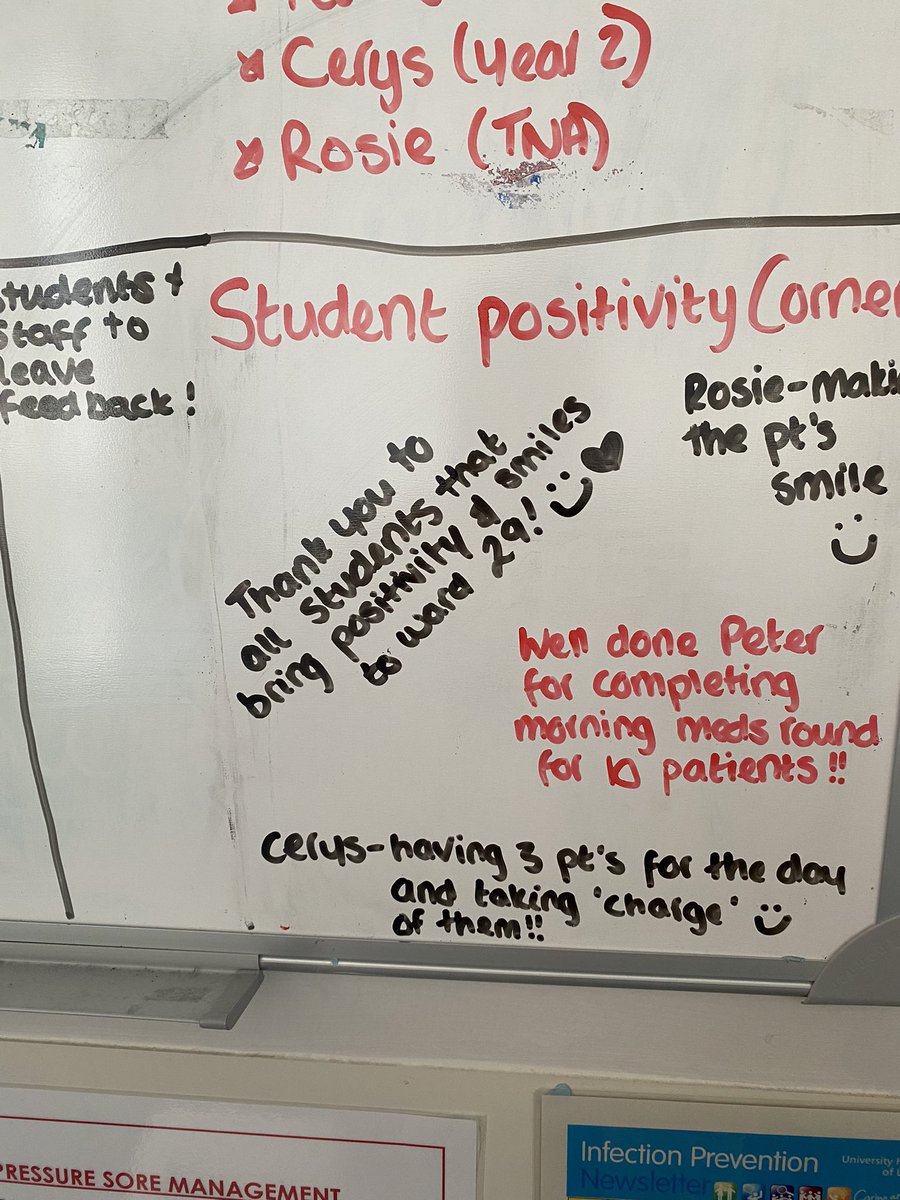 Cerys (year 2)
Rosie (TNA)
Students &
Staff to
leave
feedback!
Student positivity Corner
Thank you to
all students that
bring positivity & smiles
to ward 29!
Rosie-Maki
the pt's
smile
Well done Peter
for completing
morning meds round
for 10 patients!!
Cerys-having 3 pt's for the day
and taking 'charge'
of them!!
PRESSURE SORE MANAGEMENT
Infection Prevention
Newsletter
University